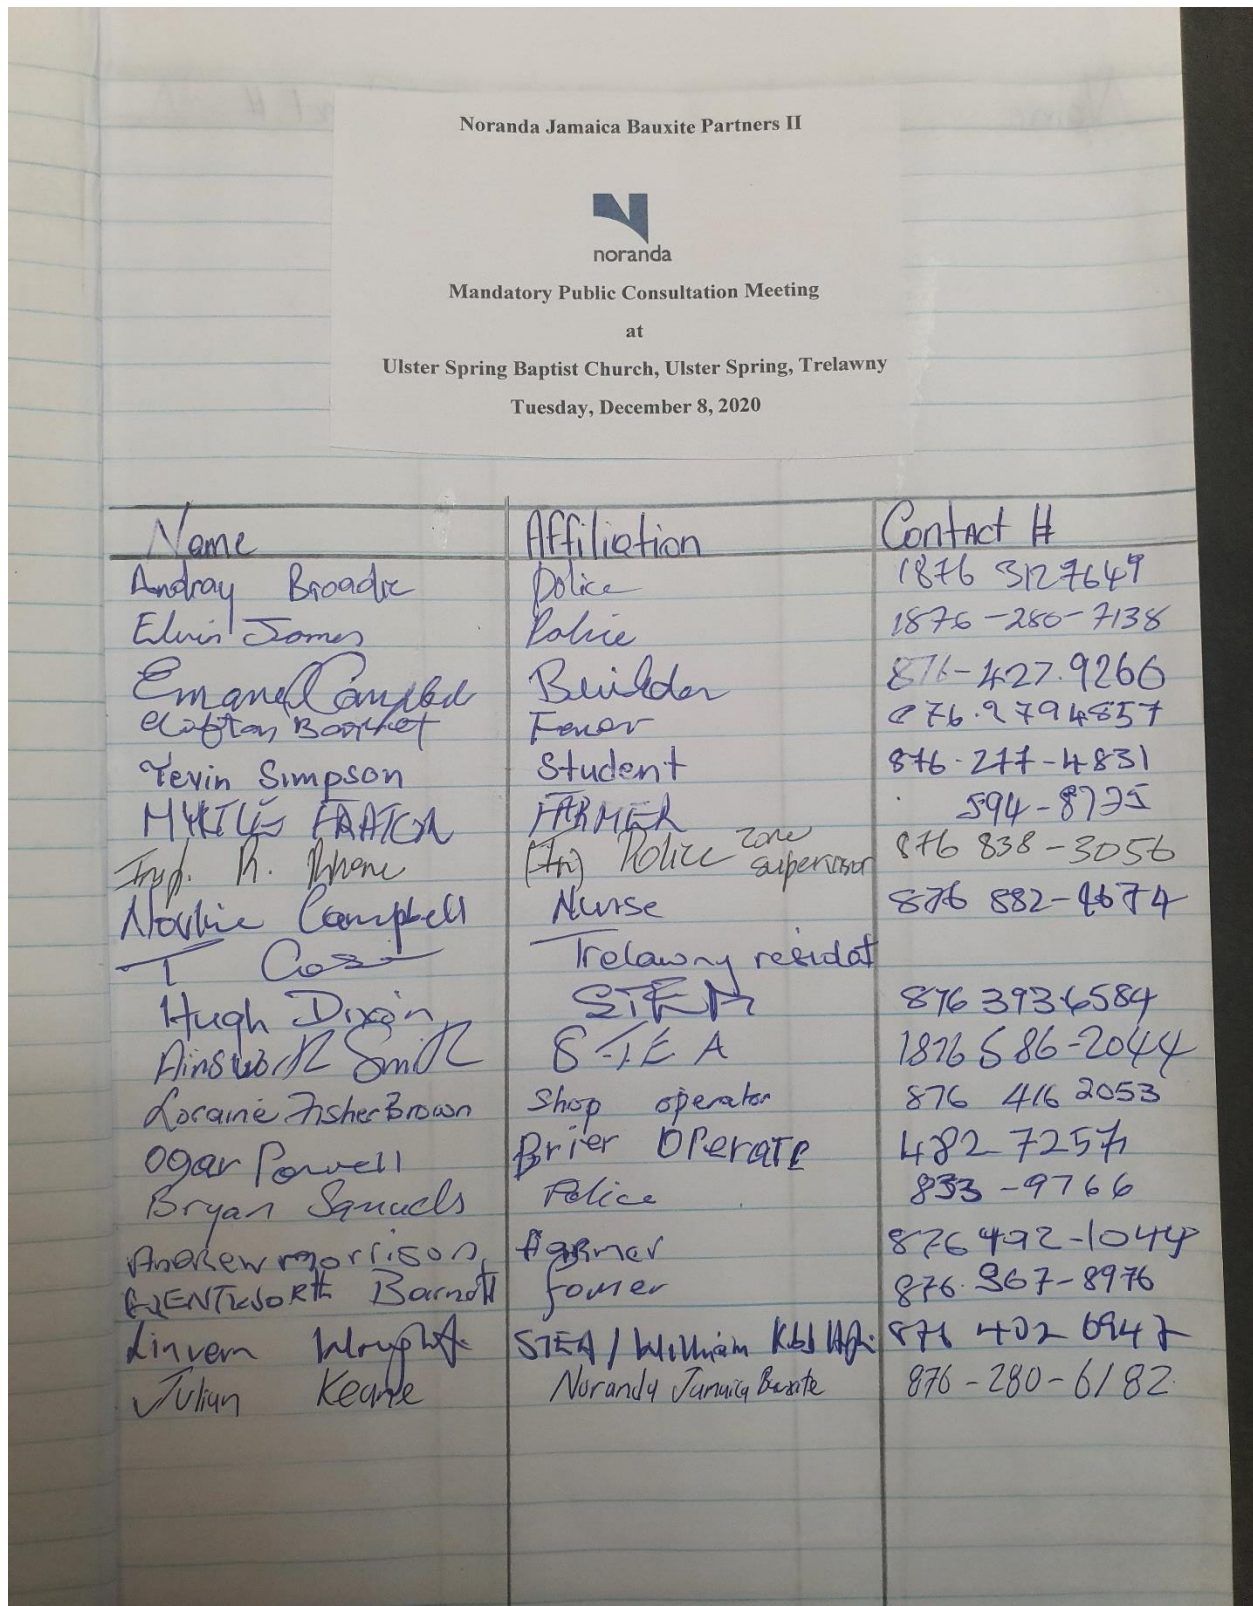 Noranda Jamaica Bauxite Partners II
noranda
Mandatory Public Consultation Meeting
at
Ulster Spring Baptist Church, Ulster Spring, Trelawny
Tuesday, December 8, 2020
Name Affiliation Contact #
Andray Broadie Police 1876 3127649
Elvis James Police 1876-280-7138
Emanel Campbell Builder 876-427.9266
876.2794857
Tevin Simpson Student 876-277-4831
FARMER 594-8725
Insp. R. (In) Police zone supervisor 876 838-3056
Campbell Nurse 876 882-4674
T Trelawny residat
Hugh Dixon STEA 876 393.6584
Ainsworth Smith STEA 1876 586-2044
Loraine Fisher Brown Shop operator 876 416 2053
Ogar Powell Brier OPerate 482 7257
Bryan Samuels Police 833-9766
Andrew morrison farmer 876 492-1044
WENTWORTH Barnett 876.367-8976
Linvern Wright STEA / William 876 402 6947
Julian Keane Noranda Jamaica Bauxite 876-280-6182